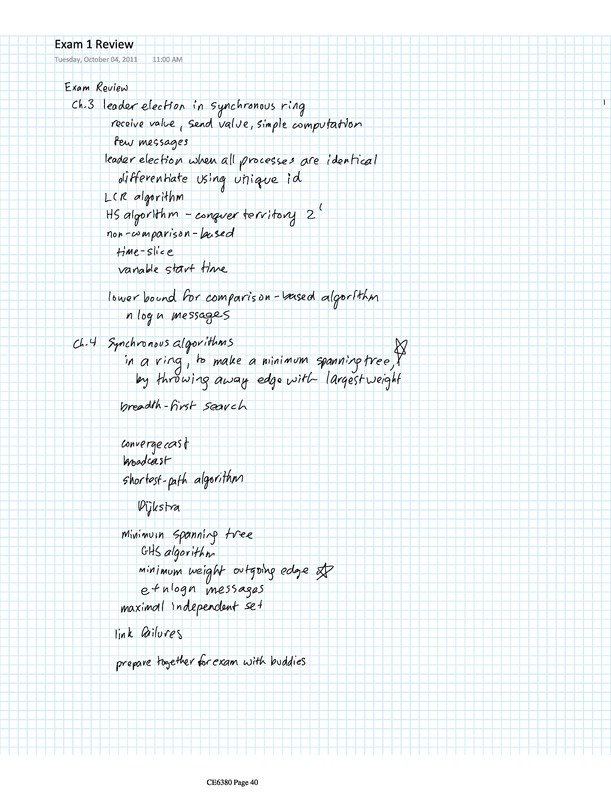 Exam 1 Review
Tuesday, October 04, 2011 11:00 AM
Exam Review
Ch.3 leader election in synchronous ring
receive value, send value, simple computation
few messages
leader election when all processes are identical
differentiate using unique id
LCR algorithm
HS algorithm - conquer territory 2^l
non-comparison-based
time-slice
variable start time
lower bound for comparison-based algorithm
n log n messages
Ch.4 Synchronous algorithms
in a ring, to make a minimum spanning tree,
by throwing away edge with largest weight
breadth-first search
convergecast
broadcast
shortest-path algorithm
Dijkstra
minimum spanning tree
GHS algorithm
minimum weight outgoing edge
e+nlogn messages
maximal independent set
link failures
prepare together for exam with buddies
CE6380 Page 40